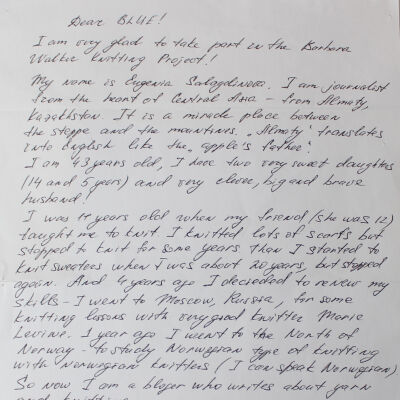 Dear BLUE!
I am very glad to take part in the Barbara
Walker Knitting Project!
My name is Eugenia Salagdinova. I am journalist
from the heart of Central Asia – from Almaty,
Kazakhstan. It is a miracle place between
the steppe and the mountines. „Almaty" translates
into English like the „apple's father".
I am 43 years old, I have two very sweet daughters
(14 and 5 years) and very clever, big and brave
husband!
I was 11 years old when my friend (she was 12)
taught me to knit. I knitted lots of scarfs but
stopped to knit for some years. Than I started to
knit sweaters when I was about 20 years, but stopped
again. And 4 years ago I decieded to renew my
skills – I went to Moscow, Russia, for some
knitting lessons with very good knitter Marie
Levine. 1 year ago I went to the North of
Norway – to study Norwegian type of knitting
with Norwegian knitters (I can speak Norwegian)
So now I am a bloger who writes about yarn
and knitting